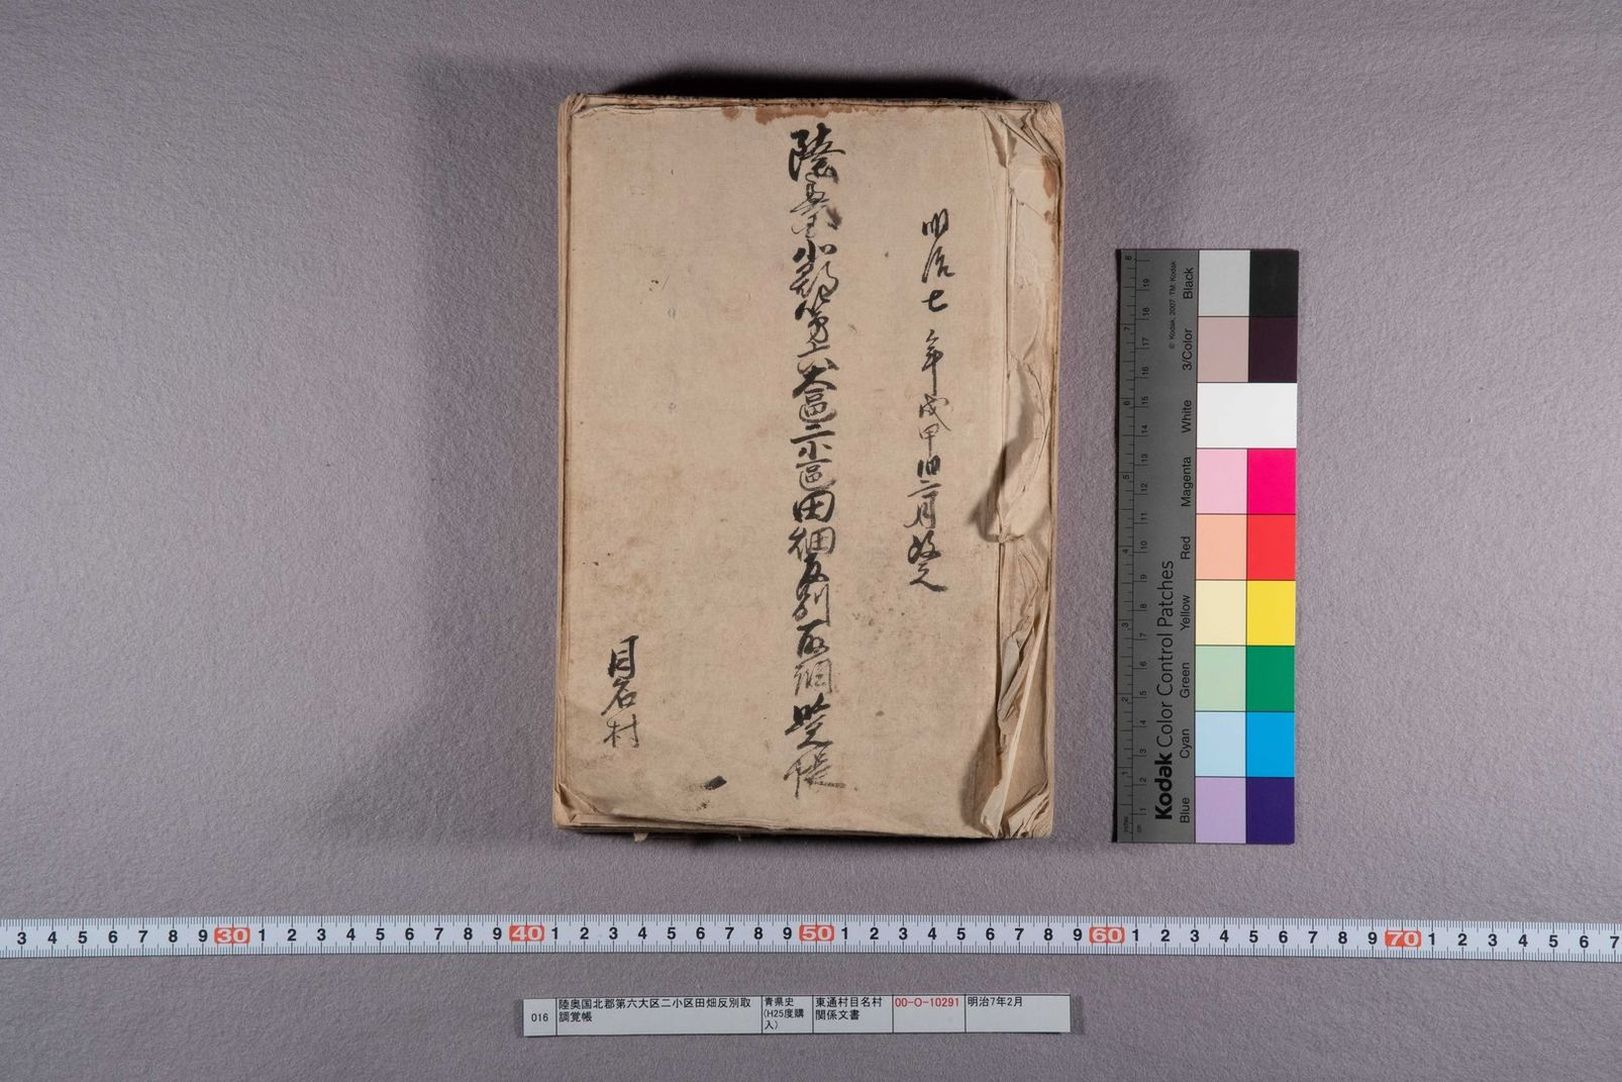 明治七年
陸奥国北郡第六大區二小區田畑反別取調覚帳
目名村
© Kodak, 2007 TM: Kodak
Kodak Color Control Patches
Blue Cyan Green Yellow Red Magenta White 3/Color Black
3 4 5 6 7 8 9 30 1 2 3 4 5 6 7 8 9 40 1 2 3 4 5 6 7 8 9 50 1 2 3 4 5 6 7 8 9 60 1 2 3 4 5 6 7 8 9 70 1 2 3 4 5 6 7
016
陸奥国北郡第六大区二小区田畑反別取
調覚帳
青県史
(H25度購
入)
東通村目名村
関係文書
00-O-10291
明治7年2月